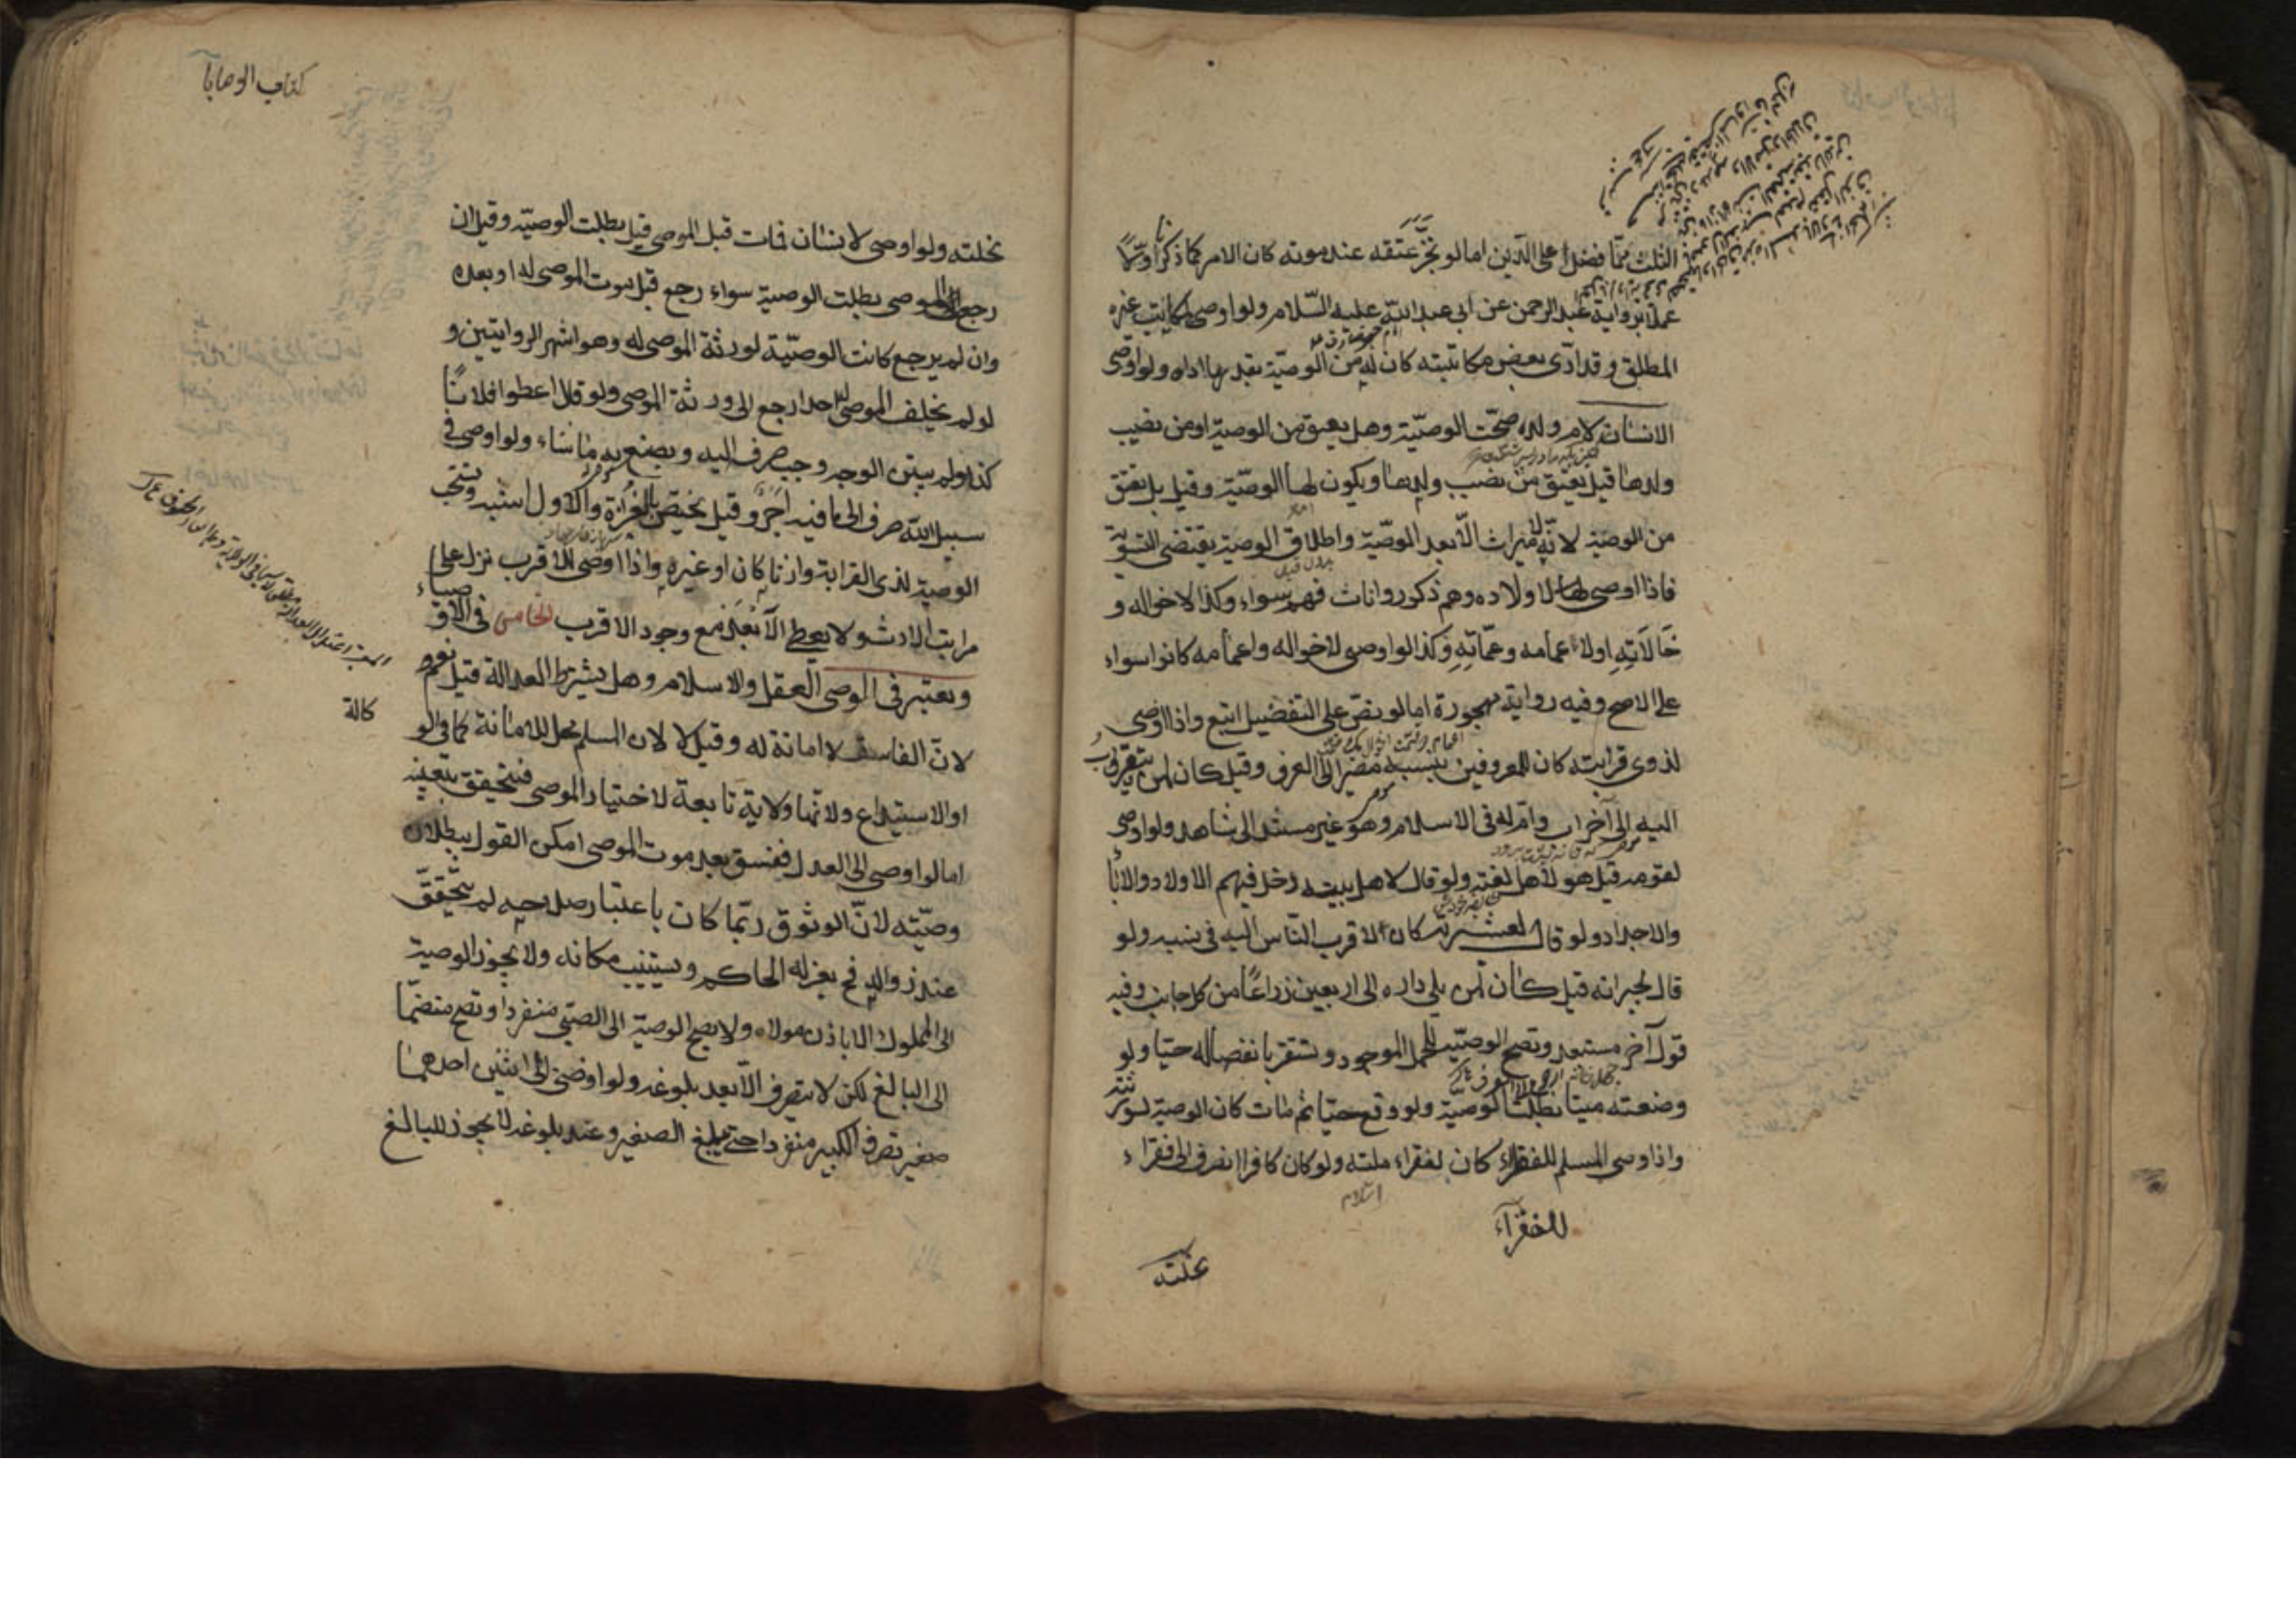 الثلث ممّا فضل على الدّين اما لو نجّز عتقه عند موته كان الامر كما ذكر اوّلاً
عملاً برواية عبد الرحمن عن ابى عبد اللّه عليه السّلام ولو اوصى لمكاتب غيره
المطلق وقد ادّى بعض مكاتبته كان له من الوصيّة بقدر ما اداه ولو اوصى
الانسان لام ولده صحّت الوصيّة وهل يعتق من الوصية او من نصيب
ولدها قيل يعتق من نصيب ولدها ويكون لها الوصيّة وقيل بل يعتق
من الوصية لانّه لا ميراث الّا بعد الوصيّة واطلاق الوصية يقتضى التسوية
فاذا اوصى لاولاده وهم ذكور واناث فهم سواء وكذا لاخواله و
خَالَاتِهِ او لاعمامه وعمّاتِهِ وكذا لو اوصى لاخواله واعمامه كانوا سواء
على الاصح وفيه رواية مهجورة اما لو نصّ على التفضيل اتبع واذا اوصى
لذوى قرابته كان للمعروفين بنسبه مصيرا الى العرف وقيل كان لمن يتقرّب
اليه الى آخر اب وام له فى الاسلام وهو غير مستند الى شاهد ولو اوصى
لقومه قيل هو لاهل لغته ولو قال لاهل بيته دخل فيهم الاولاد والاباء
والاجداد ولو قال لعشيرته كان لاقرب النّاس اليه فى نسبه ولو
قال لجيرانه قيل كان لمن يلى داره الى اربعين ذراعًا من كل جانب وفيه
قول آخر مستبعد وتصح الوصيّة للحمل الموجود وتستقر بانفصاله حيّا ولو
وضعته ميتا بطلت الوصيّة ولو وقع حيّا ثم مات كان الوصية لورثته
واذا اوصى المسلم للفقراء كان لفقراء ملته ولو كان كافرا انصرف الى فقراء
للفقرآء
نحلته
كتاب الوصايا
نحلته ولو اوصى لانسان فمات قبل الموصى قيل بطلت الوصيّة وقيل ان
رجع الموصى بطلت الوصية سواء رجع قبل موت الموصى له او بعده
وان لم يرجع كانت الوصيّة لورثة الموصى له وهو اشهر الروايتين و
لو لم يخلف الموصى له احدا رجع الى ورثة الموصى ولو قال اعطوا فلانًا
كذا ولم يبين الوجه وجب صرفه اليه ويصنع به ما شاء ولو اوصى فى
سبيل اللّه صرف الى ما فيه اجر وقيل يختص بالغزاة والاول اشبه وتستحب
الوصية لذى القرابة وارثا كان او غيره واذا اوصى للاقرب نزل على
مراتب الارث ولا يعطى الابعد مع وجود الاقرب الخامس فى الاوصياء
ويعتبر فى الموصى العقل والاسلام وهل يشترط العدالة قيل نعم
لانّ الفاسق لا امانة له وقيل لا لان المسلم محل للامانة كما فى الو
كالة
او الاستيداع ولانّها ولاية تابعة لاختيار الموصى فتتحقق بتعيينه
اما لو اوصى الى العدل ففسق بعد موت الموصى امكن القول ببطلان
وصيّته لانّ الوثوق ربّما كان باعتبار صلاحه لم يتحقّق
عند زواله فح يعزله الحاكم ويستنيب مكانه ولا يجوز الوصية
الى المملوك الا باذن مولاه ولا يصح الوصية الى الصبّى منفردا وتصح منضمّا
الى البالغ لكن لا يتصرف الّا بعد بلوغه ولو اوصى الى اثنين احدهما
صغير تصرف الكبير منفردا حتى يبلغ الصغير وعند بلوغه لا يجوز للبالغ